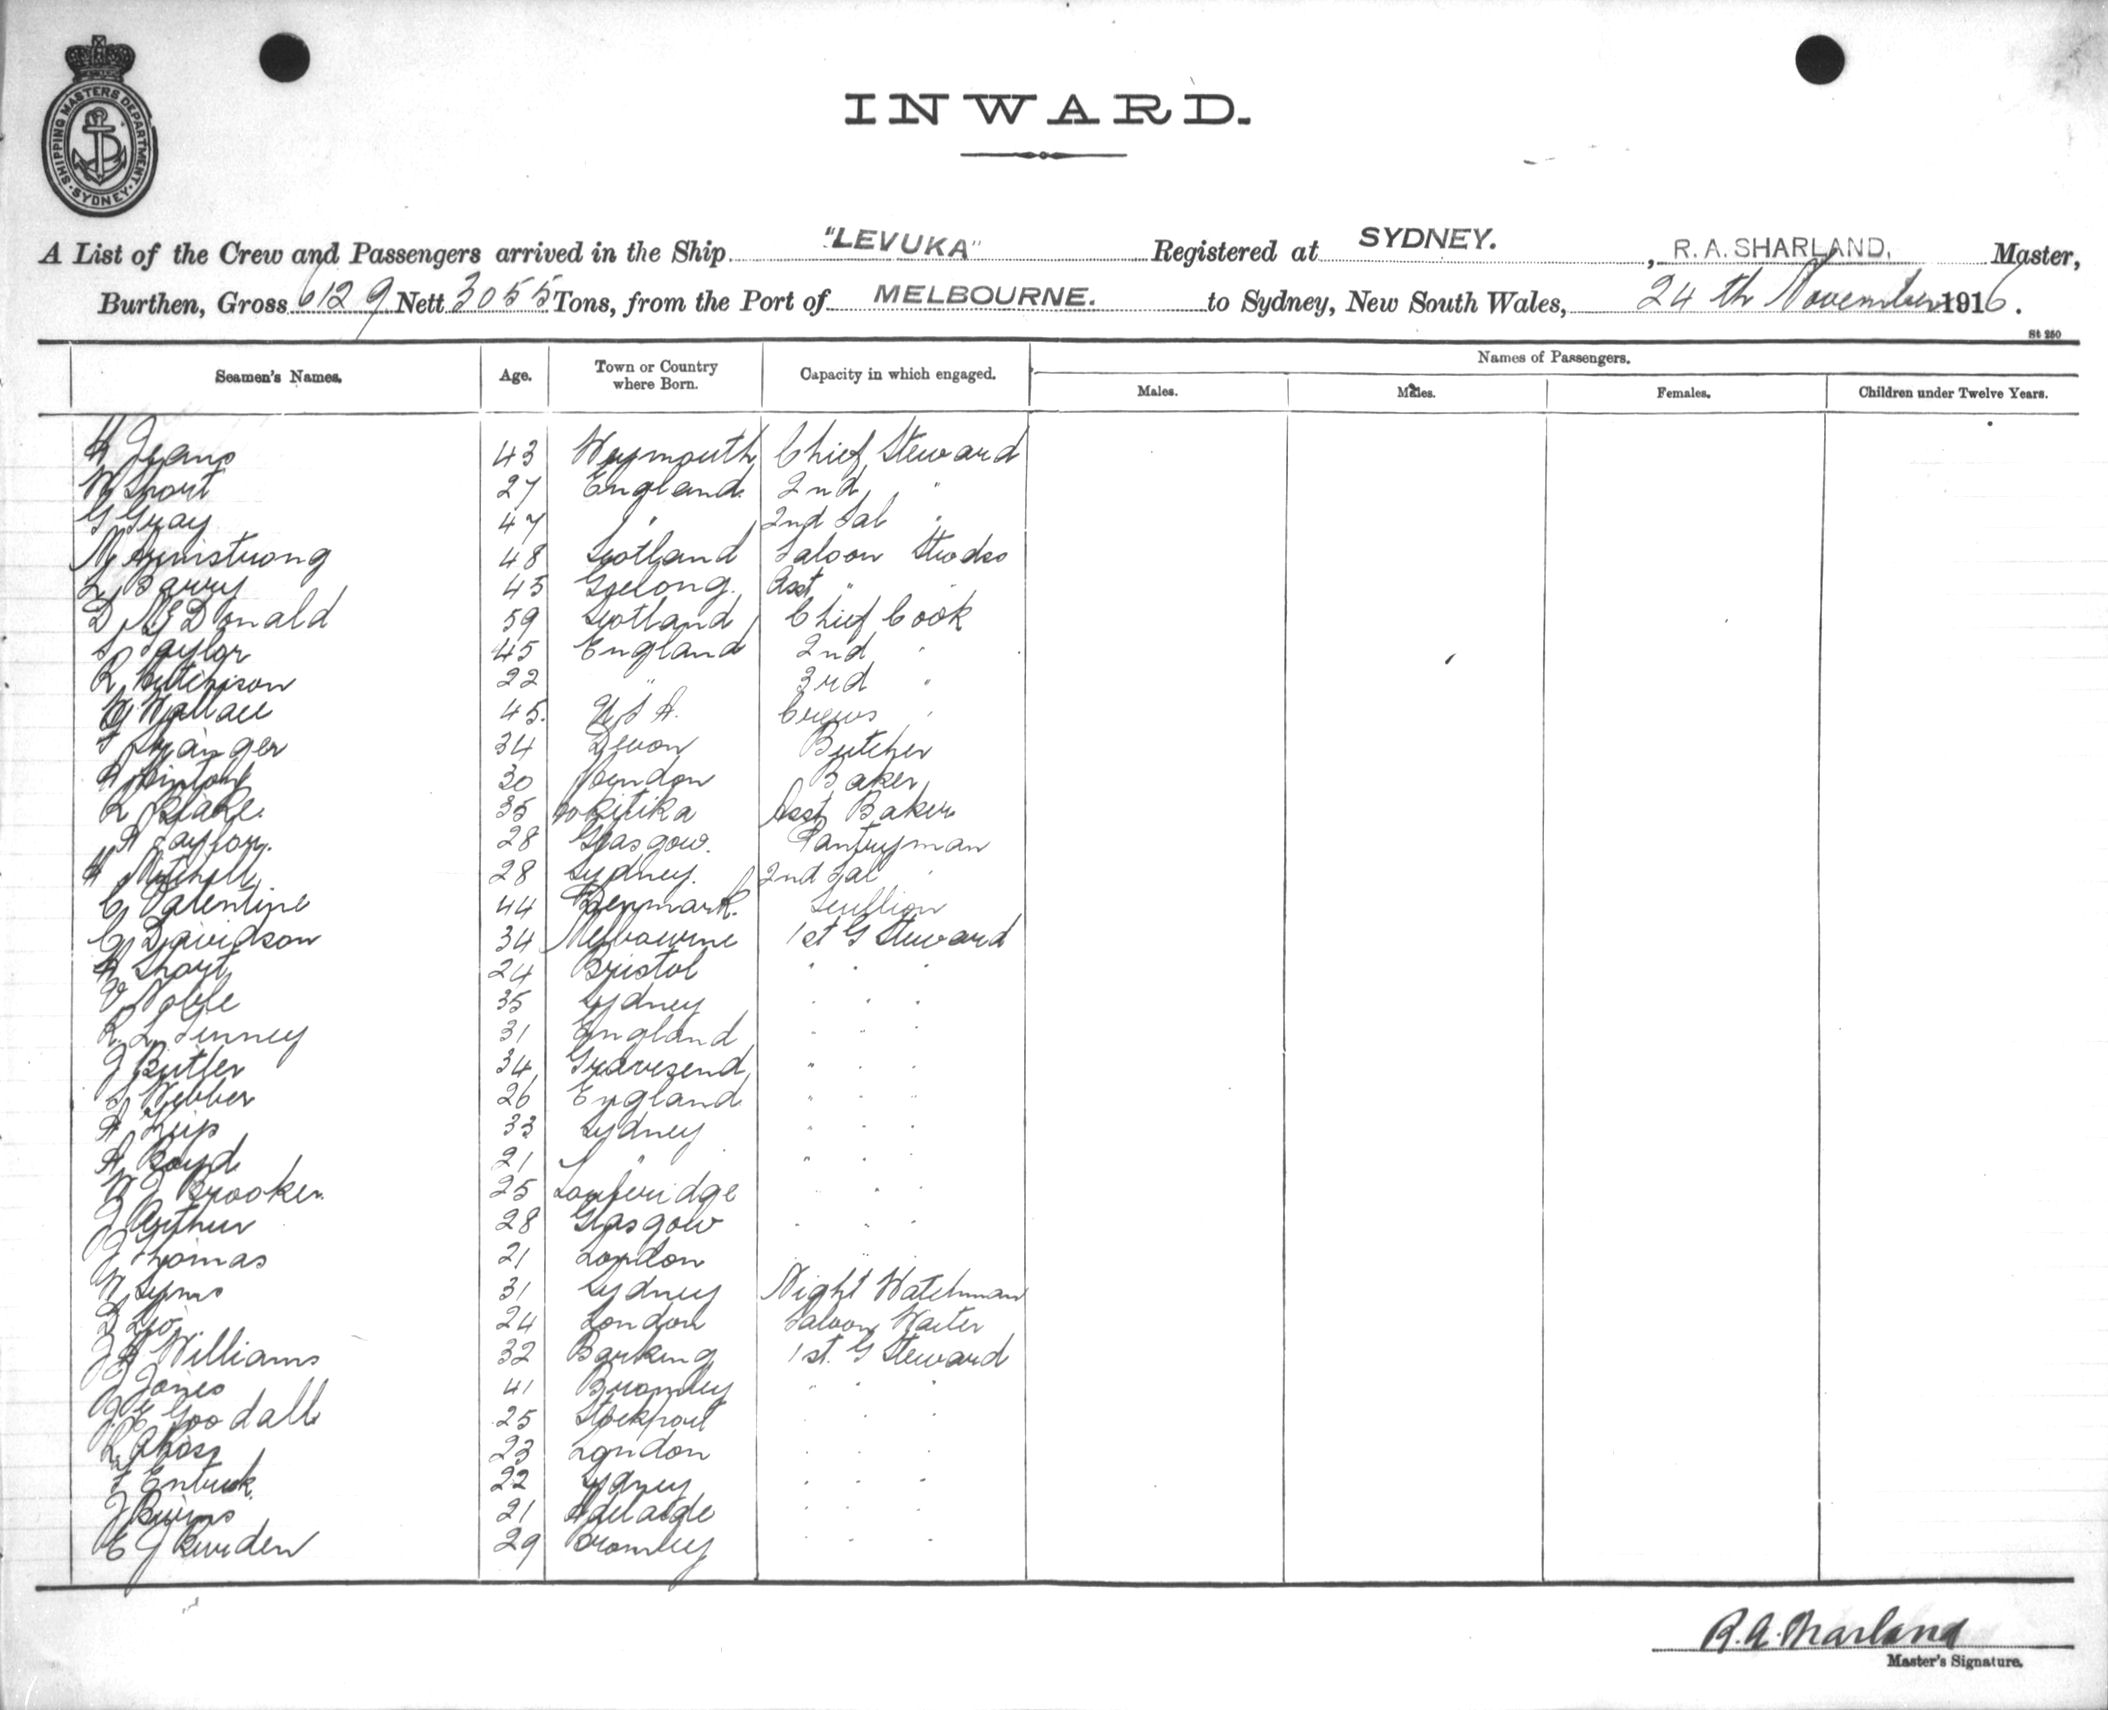 SHIPPING MASTERS DEPARTMENT
SYDNEY
INWARD.
A List of the Crew and Passengers arrived in the Ship "LEVUKA" Registered at SYDNEY. , R. A. SHARLAND, Master,
Burthen, Gross 6129 Nett 3055 Tons, from the Port of MELBOURNE. to Sydney, New South Wales, 24th November 1916.
St 250
Seamen's Names. Age. Town or Country where Born. Capacity in which engaged. Names of Passengers.
Males. Males. Females. Children under Twelve Years.
H Jeans 43 Weymouth Chief Steward
W Short 27 England 2nd "
G Gray 47 " 2nd Sal "
M Armstrong 48 Scotland Saloon Stwdss
L Barry 45 Geelong. Asst " "
D McDonald 59 Scotland Chief Cook
S Taylor 45 England 2nd "
R Hutchison 22 " 3rd "
W Wallace 45. U S A. Crews "
34 Devon Butcher
A Hinton 30 London Baker
R Blake. 35 Hokitika Asst Baker
A Taylor. 28 Glasgow. Pantryman
H Mitchell 28 Sydney. 2nd Sal "
C Valentine 44 Denmark. Scullion
C Davidson 34 Melbourne 1st G Steward
A Short 24 Bristol " " "
V Noble 35 Sydney " " "
R. L. 31 England " " "
J Butler 34 Gravesend " " "
S Webber 26 England " " "
A 33 Sydney " " "
A Boyd 21 " " " "
W J Brooker 25 " " "
J Arthur 28 Glasgow " " "
J Thomas 21 London " " "
W Syms 31 Sydney Night Watchman
D 24 London Saloon Waiter
J B Williams 32 Barking 1st. G Steward
J Jones 41 Bromley " " "
J E Goodall 25 Stockport " " "
R 23 London " " "
22 Sydney " " "
J Burns 21 Adelaide " " "
E J Burden 29 Bromley " " "
R. A. Sharland
Master's Signature.